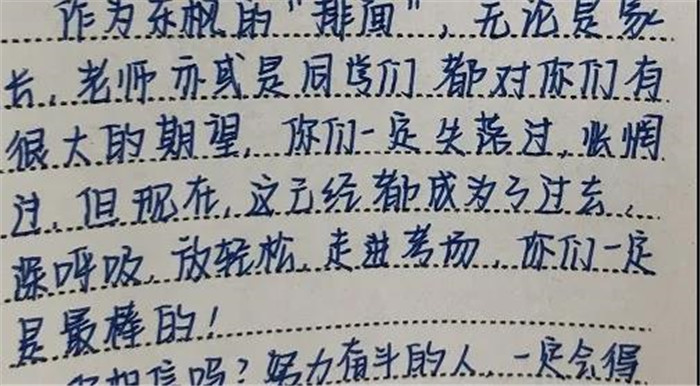 作为东枫的“排面”，无论是家
长，老师亦或是同学们都对你们有
很大的期望，你们一定失落过，怅惘
过，但现在，这已经都成为了过去，
深呼吸，放轻松，走进考场，你们一定
是最棒的！
相信吗？努力奋斗的人，一定会得